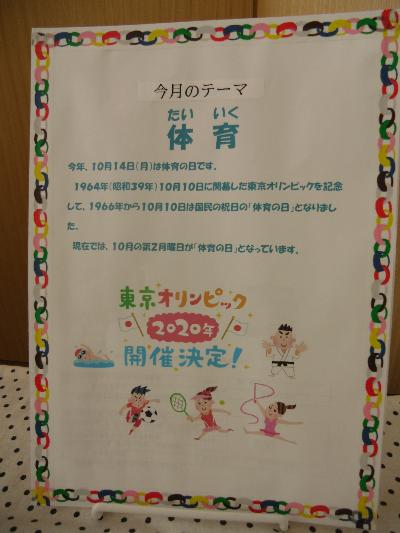 今月のテーマ
たい いく
体 育
今年、10月14日(月)は体育の日です。
1964年(昭和39年)10月10日に開幕した東京オリンピックを記念
して、1966年から10月10日は国民の祝日の「体育の日」となりまし
た。
現在では、10月の第2月曜日が「体育の日」となっています。
東京オリンピック
2020年
開催決定!